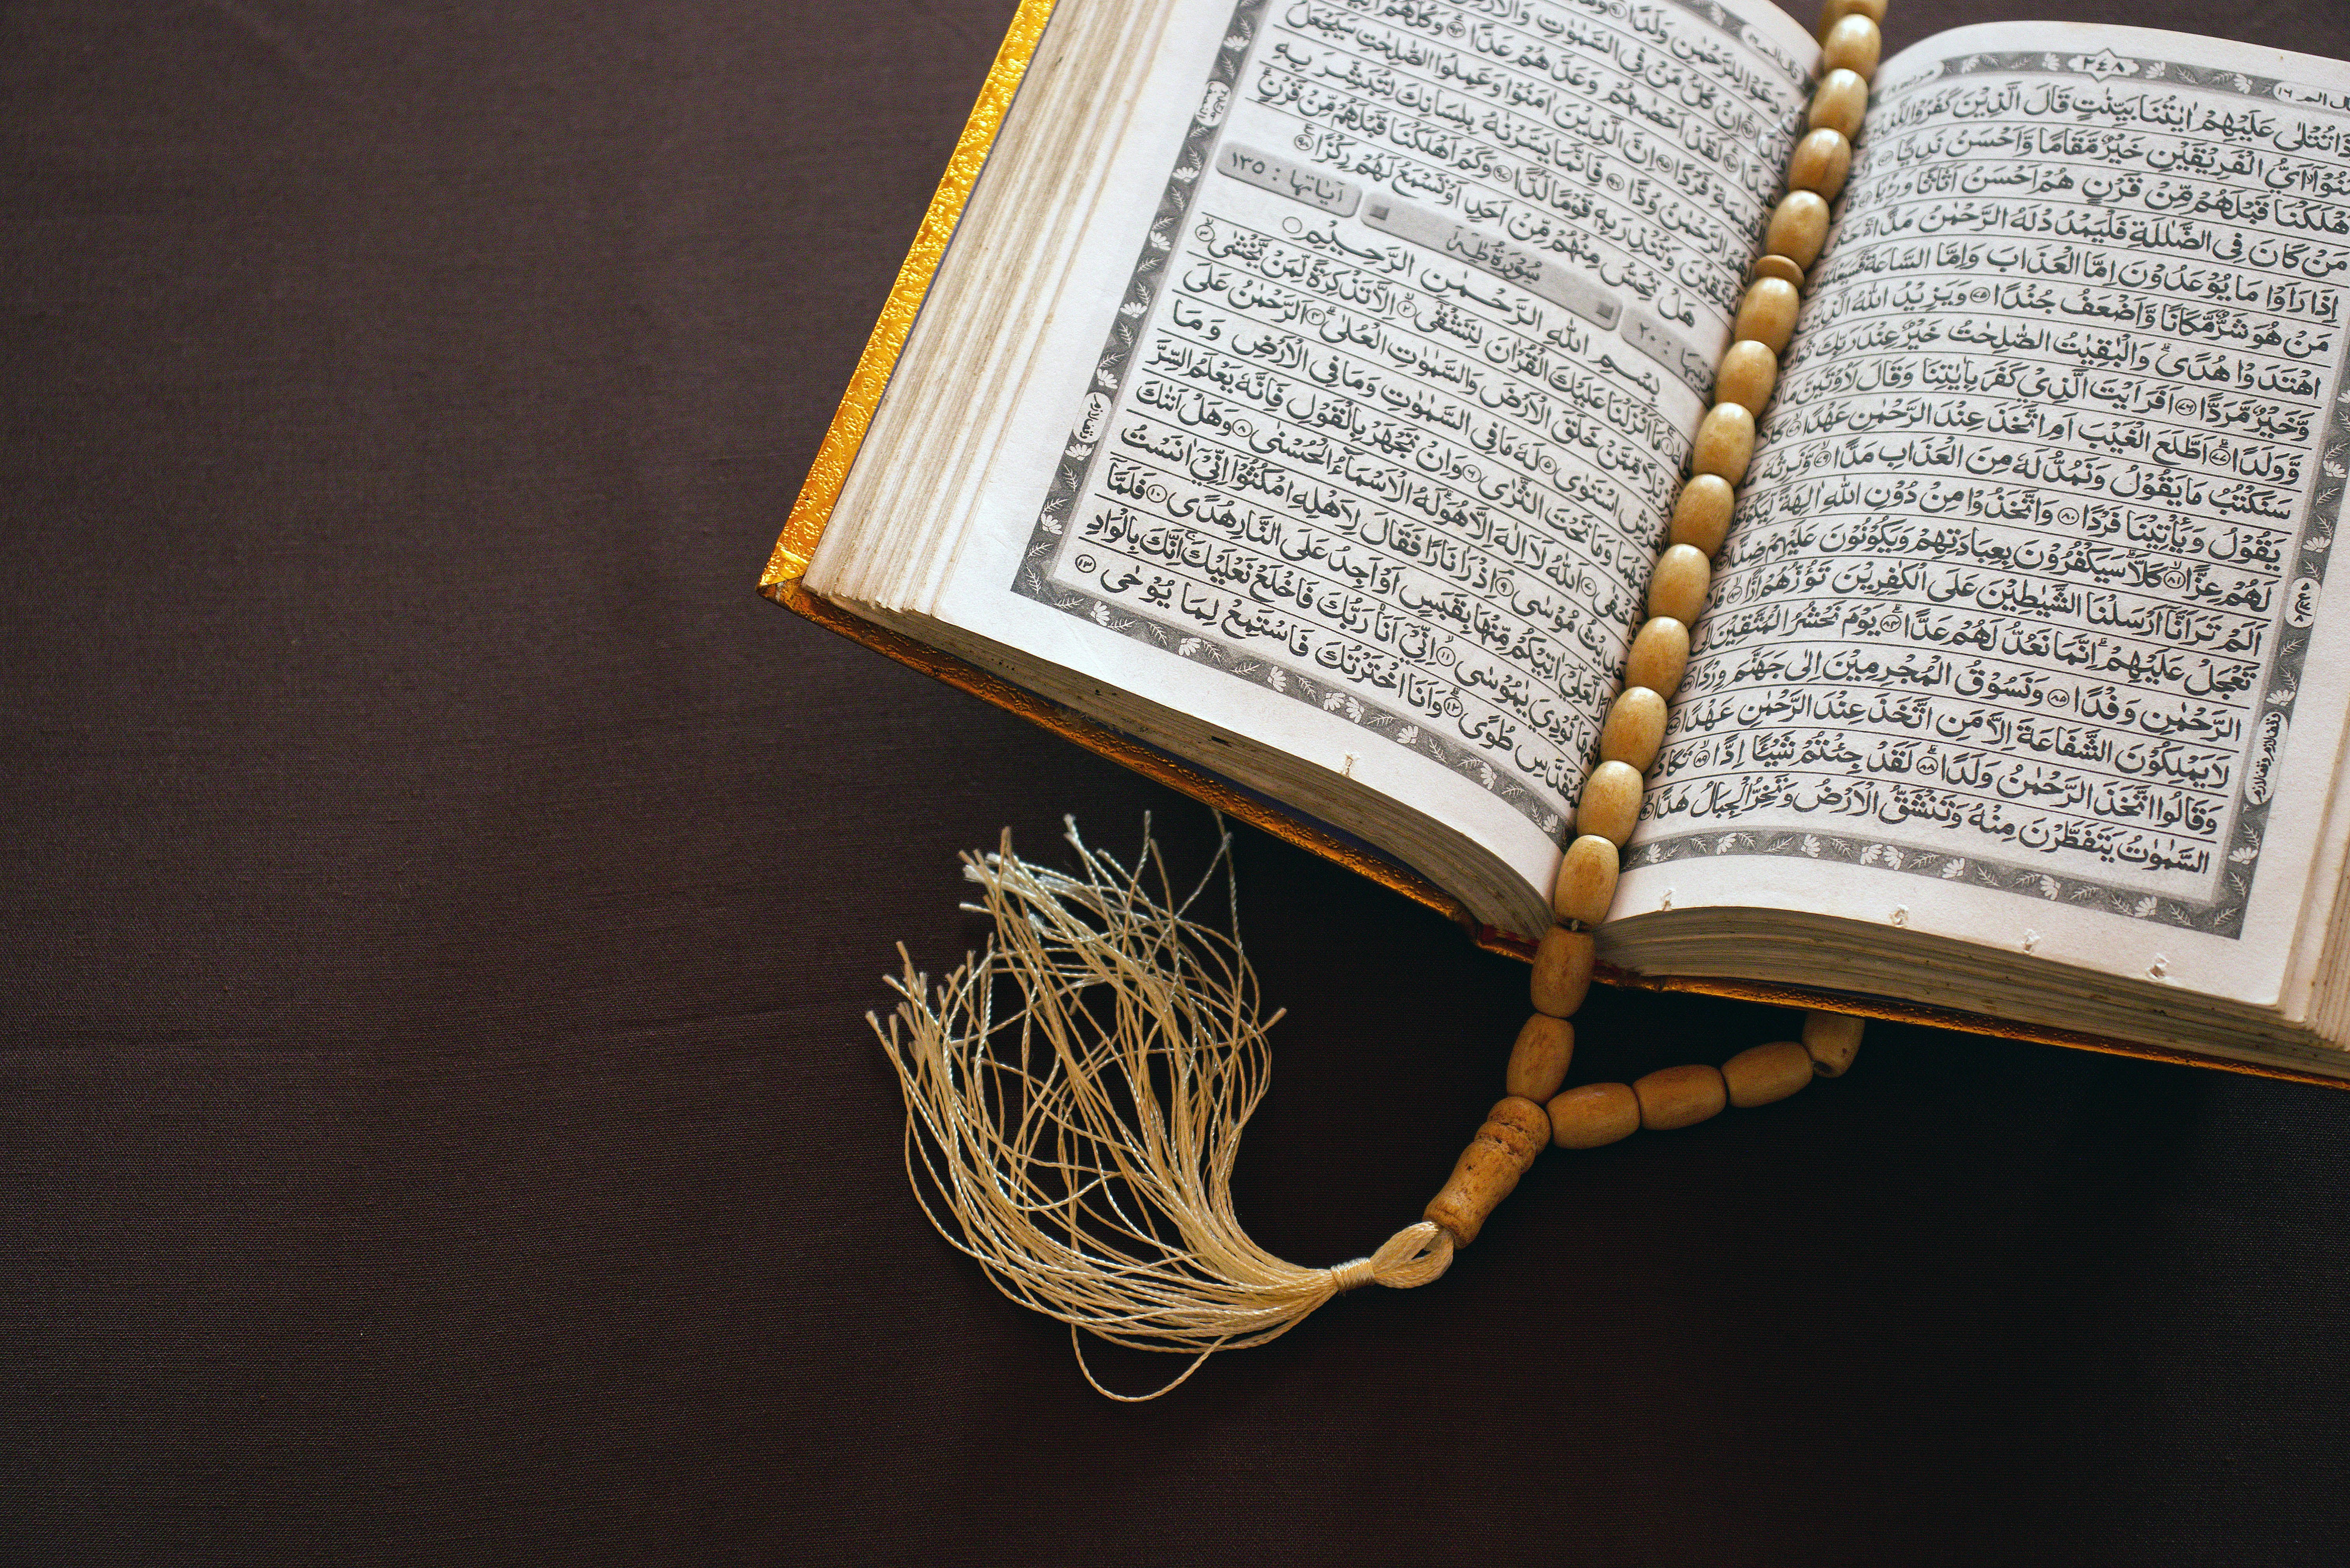 ٢٤٨
عَلَيْهِمْ اٰيٰتُنَا بَيِّنٰتٍ قَالَ الَّذِيْنَ كَفَرُوْا لِلَّذِيْنَ
الْفَرِيْقَيْنِ خَيْرٌ مَّقَامًا وَّاَحْسَنُ نَدِيًّا ﴿٧٣﴾
اَهْلَكْنَا قَبْلَهُمْ مِّنْ قَرْنٍ هُمْ اَحْسَنُ اَثَاثًا وَّرِءْيًا ﴿٧٤﴾
مَنْ كَانَ فِى الضَّلٰلَةِ فَلْيَمْدُدْ لَهُ الرَّحْمٰنُ مَدًّا
اِذَا رَاَوْا مَا يُوْعَدُوْنَ اِمَّا الْعَذَابَ وَاِمَّا السَّاعَةَ فَسَيَعْلَمُوْنَ
مَنْ هُوَ شَرٌّ مَّكَانًا وَّاَضْعَفُ جُنْدًا ﴿٧٥﴾ وَيَزِيْدُ اللّٰهُ الَّذِيْنَ
اهْتَدَوْا هُدًى وَالْبٰقِيٰتُ الصّٰلِحٰتُ خَيْرٌ عِنْدَ رَبِّكَ ثَوَابًا
وَّخَيْرٌ مَّرَدًّا ﴿٧٦﴾ اَفَرَءَيْتَ الَّذِيْ كَفَرَ بِاٰيٰتِنَا وَقَالَ لَاُوْتَيَنَّ مَالًا
وَّوَلَدًا ﴿٧٧﴾ اَطَّلَعَ الْغَيْبَ اَمِ اتَّخَذَ عِنْدَ الرَّحْمٰنِ عَهْدًا ﴿٧٨﴾ كَلَّا
سَنَكْتُبُ مَا يَقُوْلُ وَنَمُدُّ لَهٗ مِنَ الْعَذَابِ مَدًّا ﴿٧٩﴾ وَّنَرِثُهٗ مَا
يَقُوْلُ وَيَأْتِيْنَا فَرْدًا ﴿٨٠﴾ وَاتَّخَذُوْا مِنْ دُوْنِ اللّٰهِ اٰلِهَةً لِّيَكُوْنُوْا
لَهُمْ عِزًّا ﴿٨١﴾ كَلَّا سَيَكْفُرُوْنَ بِعِبَادَتِهِمْ وَيَكُوْنُوْنَ عَلَيْهِمْ ضِدًّا ﴿٨٢﴾
اَلَمْ تَرَ اَنَّا اَرْسَلْنَا الشَّيٰطِيْنَ عَلَى الْكٰفِرِيْنَ تَؤُزُّهُمْ اَزًّا ﴿٨٣﴾ فَلَا
تَعْجَلْ عَلَيْهِمْ اِنَّمَا نَعُدُّ لَهُمْ عَدًّا ﴿٨٤﴾ يَوْمَ نَحْشُرُ الْمُتَّقِيْنَ اِلَى
الرَّحْمٰنِ وَفْدًا ﴿٨٥﴾ وَّنَسُوْقُ الْمُجْرِمِيْنَ اِلٰى جَهَنَّمَ وِرْدًا ﴿٨٦﴾
لَا يَمْلِكُوْنَ الشَّفَاعَةَ اِلَّا مَنِ اتَّخَذَ عِنْدَ الرَّحْمٰنِ عَهْدًا ﴿٨٧﴾
وَقَالُوا اتَّخَذَ الرَّحْمٰنُ وَلَدًا ﴿٨٨﴾ لَقَدْ جِئْتُمْ شَيْئًا اِدًّا ﴿٨٩﴾ تَكَادُ
السَّمٰوٰتُ يَتَفَطَّرْنَ مِنْهُ وَتَنْشَقُّ الْاَرْضُ وَتَخِرُّ الْجِبَالُ هَدًّا ﴿٩٠﴾
دَعَوْا لِلرَّحْمٰنِ وَلَدًا ﴿٩١﴾
اِنْ كُلُّ مَنْ فِى السَّمٰوٰتِ وَالْاَرْضِ
لَقَدْ اَحْصٰىهُمْ وَعَدَّهُمْ عَدًّا ﴿٩٤﴾ وَكُلُّهُمْ اٰتِيْهِ
الْقِيٰمَةِ فَرْدًا ﴿٩٥﴾ اِنَّ الَّذِيْنَ اٰمَنُوْا وَعَمِلُوا الصّٰلِحٰتِ سَيَجْعَلُ
لَهُمُ الرَّحْمٰنُ وُدًّا ﴿٩٦﴾ فَاِنَّمَا يَسَّرْنٰهُ بِلِسَانِكَ لِتُبَشِّرَ بِهِ
الْمُتَّقِيْنَ وَتُنْذِرَ بِهٖ قَوْمًا لُّدًّا ﴿٩٧﴾ وَكَمْ اَهْلَكْنَا قَبْلَهُمْ مِّنْ قَرْنٍ
هَلْ تُحِسُّ مِنْهُمْ مِّنْ اَحَدٍ اَوْ تَسْمَعُ لَهُمْ رِكْزًا ﴿٩٨﴾
ترتيبها : ٢٠ سُوْرَةُ طٰهٰ اٰياتها : ١٣٥
بِسْمِ اللّٰهِ الرَّحْمٰنِ الرَّحِيْمِ
مَا اَنْزَلْنَا عَلَيْكَ الْقُرْاٰنَ لِتَشْقٰى ﴿٢﴾ اِلَّا تَذْكِرَةً لِّمَنْ يَّخْشٰى ﴿٣﴾
تَنْزِيْلًا مِّمَّنْ خَلَقَ الْاَرْضَ وَالسَّمٰوٰتِ الْعُلٰى ﴿٤﴾ اَلرَّحْمٰنُ عَلَى
الْعَرْشِ اسْتَوٰى ﴿٥﴾ لَهٗ مَا فِى السَّمٰوٰتِ وَمَا فِى الْاَرْضِ وَمَا
بَيْنَهُمَا وَمَا تَحْتَ الثَّرٰى ﴿٦﴾ وَاِنْ تَجْهَرْ بِالْقَوْلِ فَاِنَّهٗ يَعْلَمُ السِّرَّ
وَاَخْفٰى ﴿٧﴾ اَللّٰهُ لَا اِلٰهَ اِلَّا هُوَ لَهُ الْاَسْمَاءُ الْحُسْنٰى ﴿٨﴾ وَهَلْ اَتٰىكَ
حَدِيْثُ مُوْسٰى ﴿٩﴾ اِذْ رَاٰ نَارًا فَقَالَ لِاَهْلِهِ امْكُثُوْا اِنِّيْ اٰنَسْتُ
لَّعَلِّيْ اٰتِيْكُمْ مِّنْهَا بِقَبَسٍ اَوْ اَجِدُ عَلَى النَّارِ هُدًى ﴿١٠﴾ فَلَمَّا
اَتٰىهَا نُوْدِيَ يٰمُوْسٰى ﴿١١﴾ اِنِّيْ اَنَا رَبُّكَ فَاخْلَعْ نَعْلَيْكَ اِنَّكَ بِالْوَادِ
الْمُقَدَّسِ طُوًى ﴿١٢﴾ وَاَنَا اخْتَرْتُكَ فَاسْتَمِعْ لِمَا يُوْحٰى ﴿١٣﴾